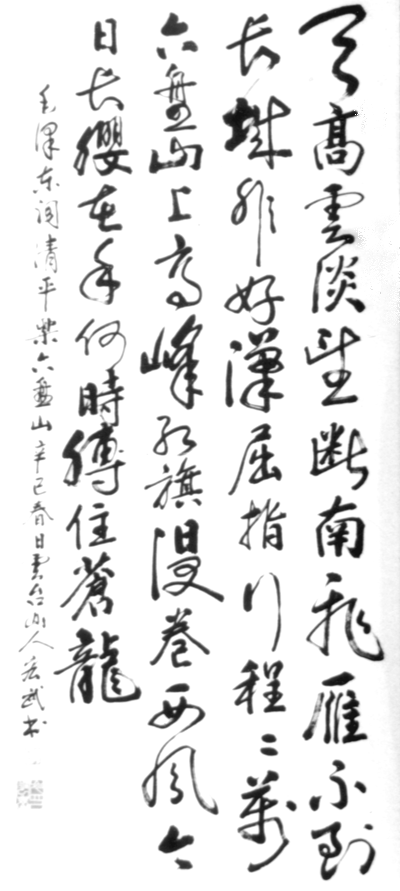 天高雲淡望斷南飛雁不到
長城非好漢屈指行程二萬
六盤山上高峰紅旗漫卷西風今
日長纓在手何時縛住蒼龍
毛澤東詞清平樂六盤山辛巳春日雲台山人武書